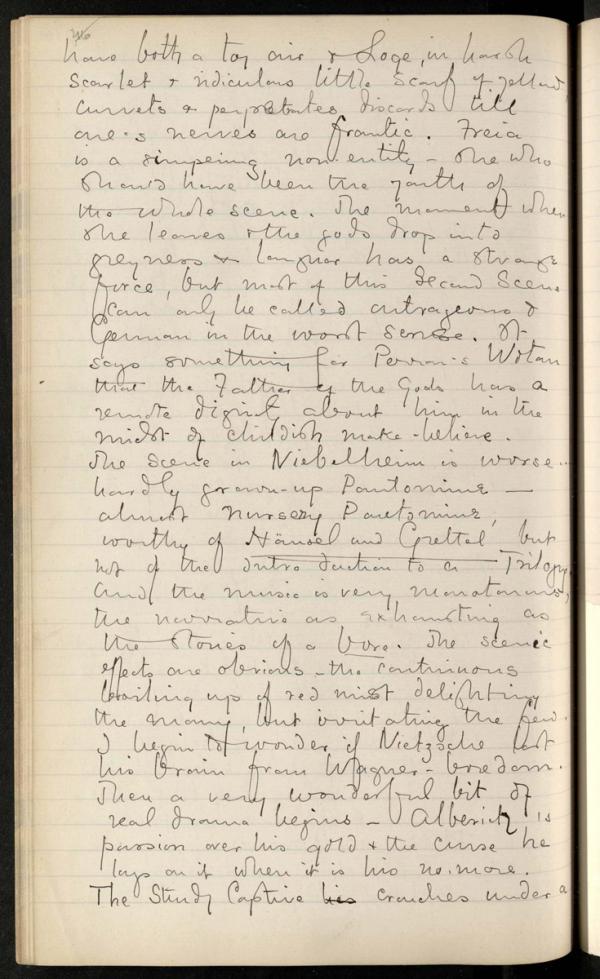 have both a toy air & Loge, in harsh
scarlet & ridiculous little scarf of yellow
curvets & perpetrates discords till
one's nerves are frantic. Freia
is a simpering non-entity – she who
should have been the youth of
the whole scene. The moment when
she leaves & the gods drop into
greyness & languor has a strange
force, but most of this Second Scene
can only be called outrageous &
German in the worst sense. It
says something for Perron's Wotan
that the Father of the Gods has a
remote dignity about him in the
midst of childish make-believe.
The scene in Niebelheim is worse..
hardly grown-up Pantomime —
almost nursery Pantomime,
worthy of Hänsel and Grettel but
not of the Introduction to a Trilogy.
And the music is very monotonous,
the narrative as exhausting as
the stories of a bore. The scenic
effects are obvious – the continuous
boiling up of red mist delighting
the many, but irritating the few.
I begin to wonder if Nietzsche lost
his brain from Wagner-boredom.
Then a very wonderful bit of
real drama begins – Alberich's
passion over his gold & the curse he
lays on it when it is his no more.
The Sturdy Captive his crouches under a